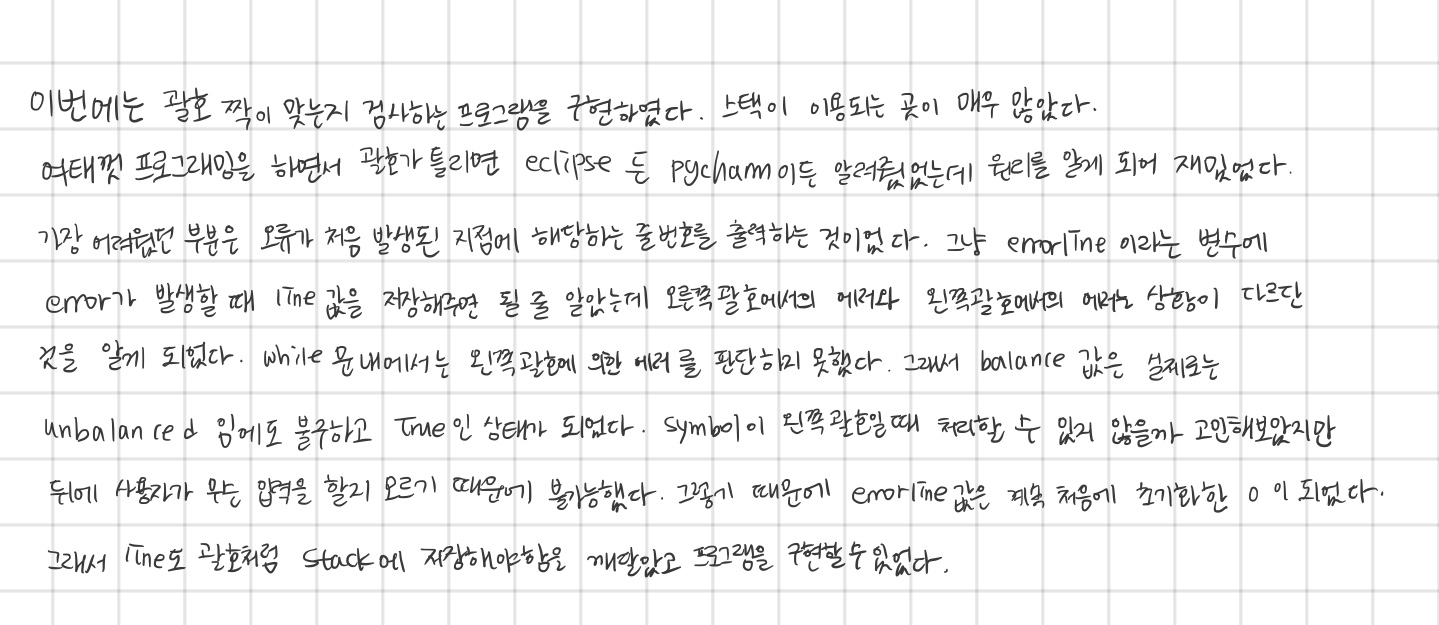 이번에는 괄호 짝이 맞는지 검사하는 프로그램을 구현하였다. 스택이 이용되는 곳이 매우 많았다.
여태껏 프로그래밍을 하면서 괄호가 틀리면 eclipse 든 pycham이든 알려줬었는데 원리를 알게 되어 재밌었다.
가장 어려웠던 부분은 오류가 처음 발생된 지점에 해당하는 줄번호를 출력하는 것이었다. 그냥 errorline 이라는 변수에
error가 발생할 때 line 값을 저장해주면 될 줄 알았는데 오른쪽괄호에서의 에러와 왼쪽괄호에서의 에러는 상황이 다르단
것을 알게 되었다. while 문내에서는 왼쪽괄호에 의한 에러를 판단하지 못했다. 그래서 balance 값은 실제로는
unbalanced 임에도 불구하고 True인 상태가 되었다. symbol이 왼쪽괄호일때 처리할 수 있지 않을까 고민해보았지만
뒤에 사용자가 무슨 입력을 할지 모르기 때문에 불가능했다. 그렇기 때문에 errorline값은 계속 처음에 초기화한 0 이 되었다.
그래서 line도 괄호처럼 stack에 저장해야함을 깨달았고 프로그램을 구현할수있었다.